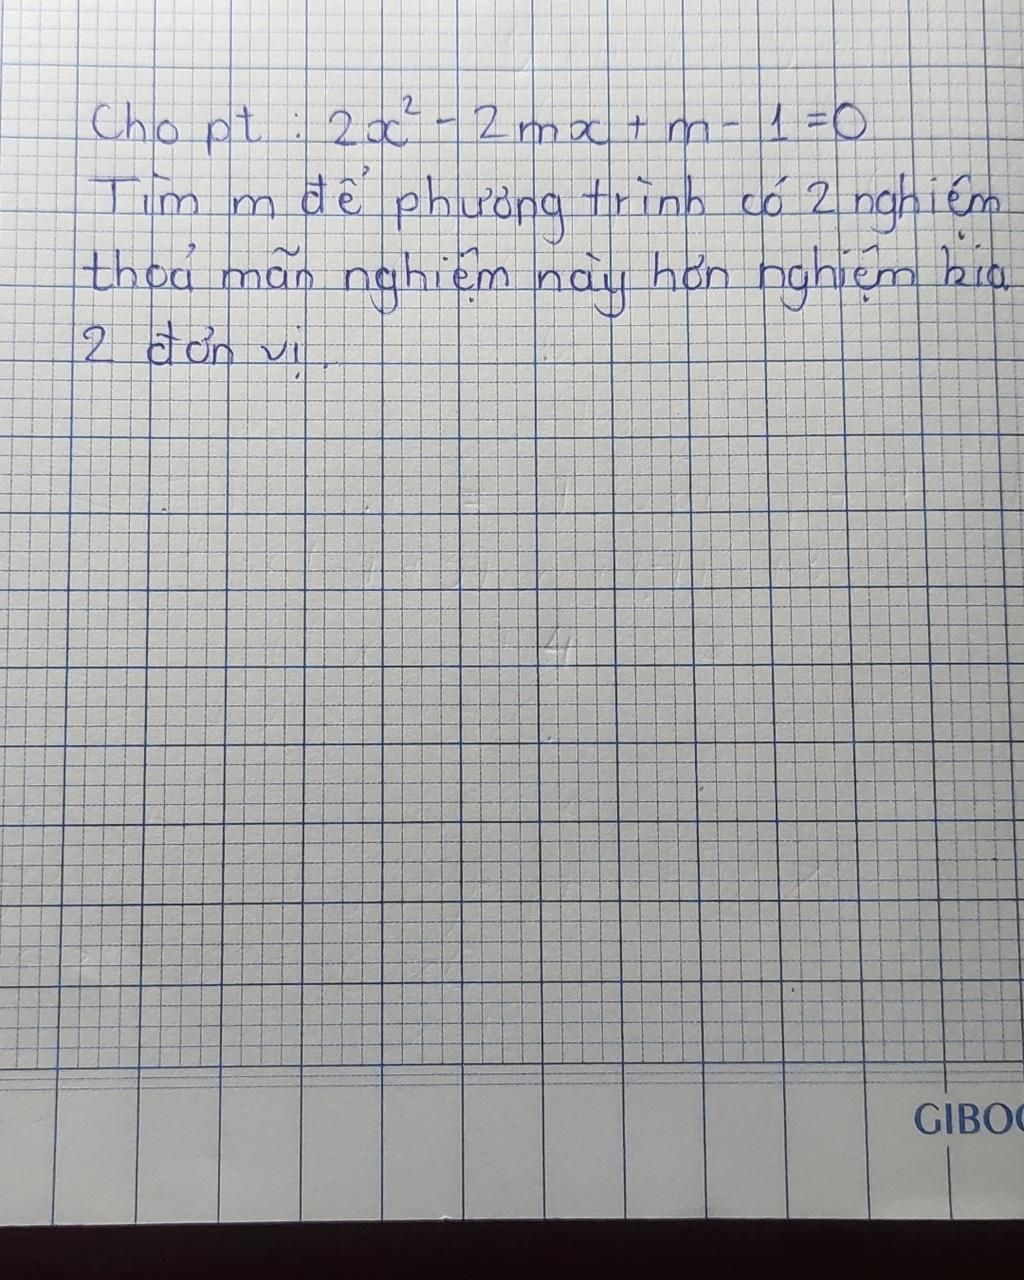 Cho pt : 2x² - 2mx + m - 1 = 0
Tìm m để phương trình có 2 nghiệm
thoả mãn nghiệm này hơn nghiệm kia
2 đơn vị.